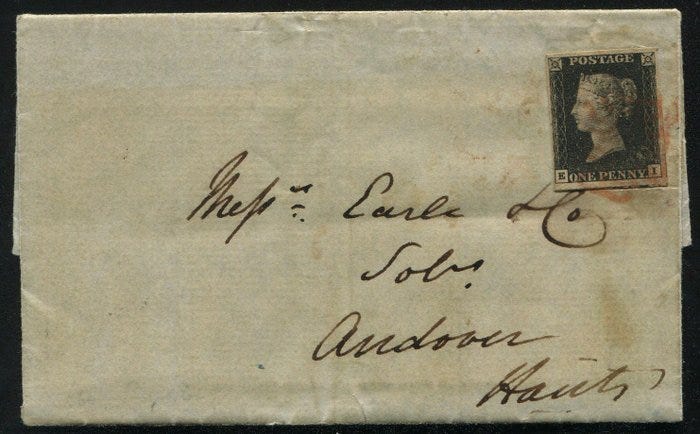 POSTAGE
E ONE PENNY I
Messrs Earle & Co
Solrs
Andover
Hants